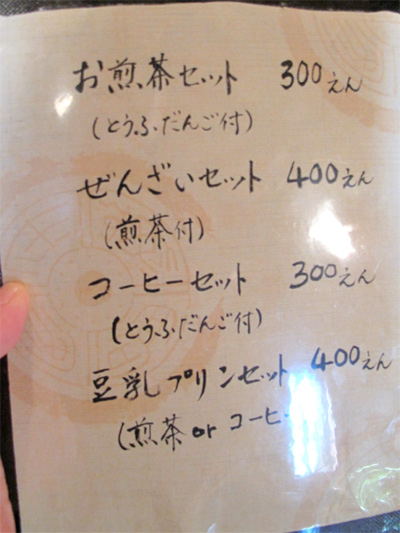 お煎茶セット 300えん
(とうふだんご付)
ぜんざいセット 400えん
(煎茶付)
コーヒーセット 300えん
(とうふだんご付)
豆乳プリンセット 400えん
(煎茶 or コーヒー